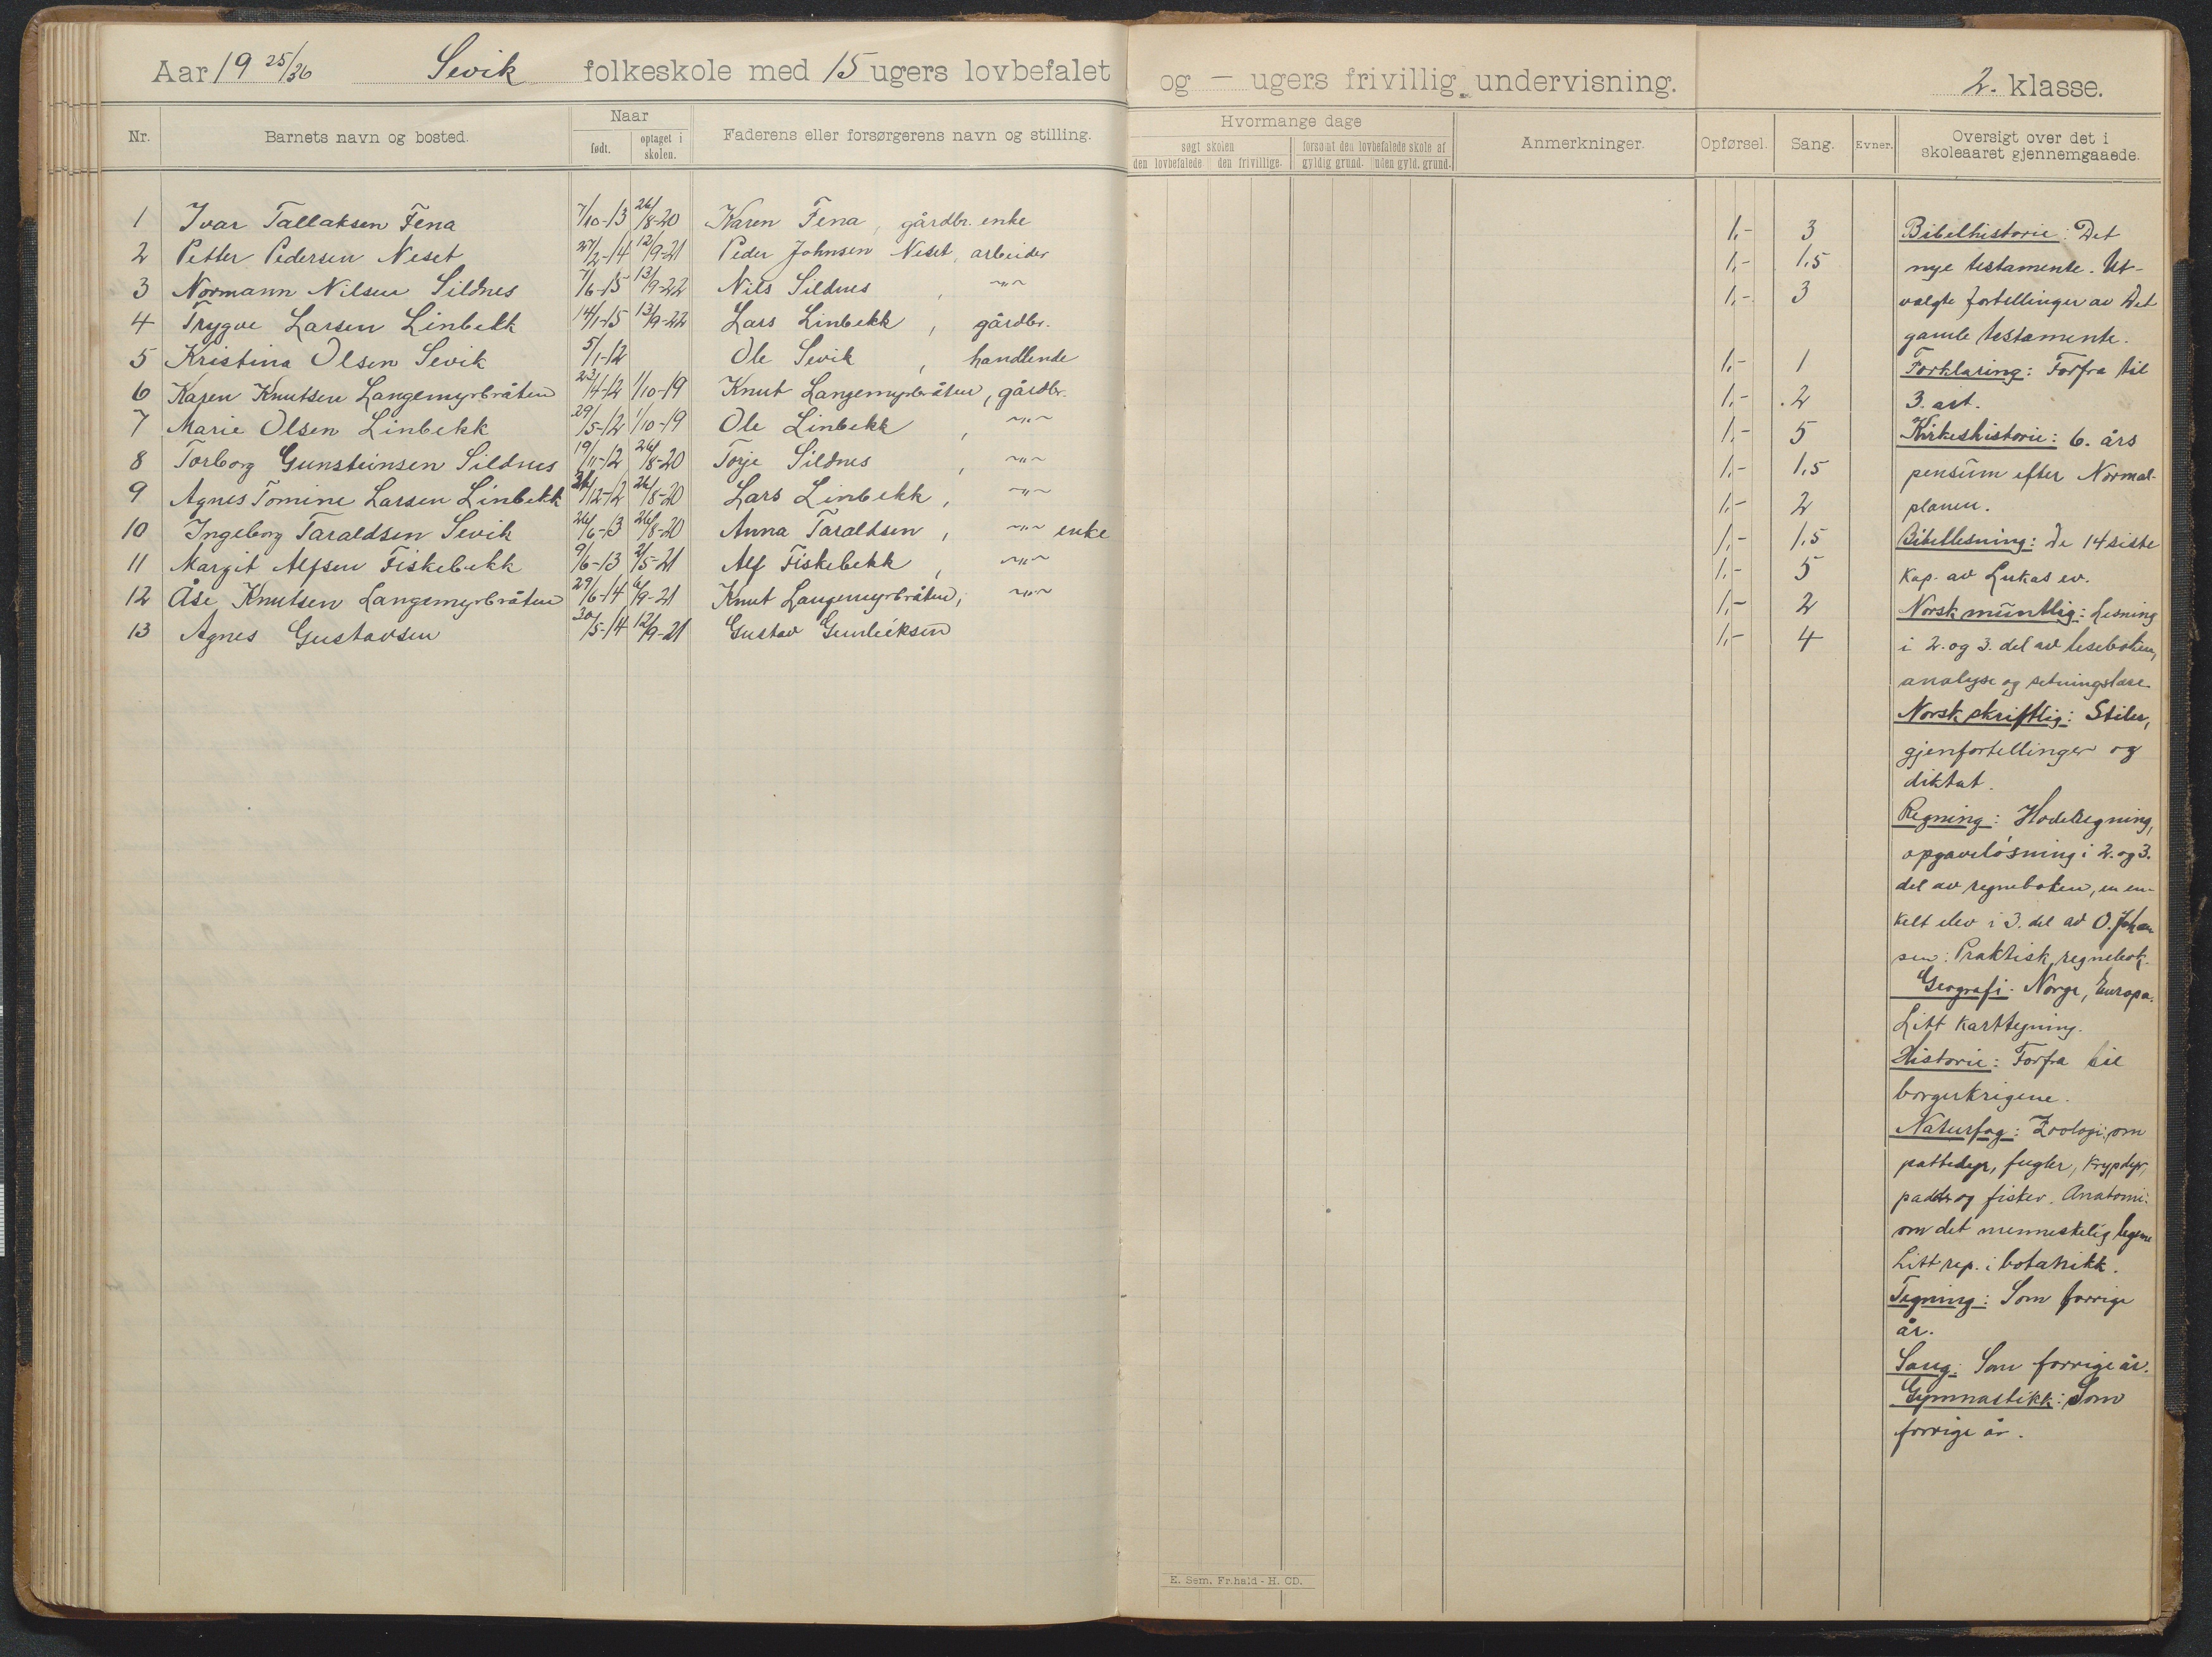 Aar 19 25/26 Sevik folkeskole med 15 ugers lovbefalet og — ugers frivillig undervisning. 2. klasse.
Nr. Barnets navn og bosted. Naar født. optaget i skolen. Faderens eller forsørgerens navn og stilling. Hvormange dage søgt skolen den lovbefalede den frivillige. forsømt den lovbefalede skole af gyldig grund. uden gyld. grund. Anmerkninger. Opførsel. Sang. Evner. Oversigt over det i skoleaaret gjennemgaaede.
1 Ivar Tallaksen Fena 7/10-13 26/8-20 Karen Fena, gårdbr. enke 1,- 3
2 Petter Pedersen Neset 27/2-14 12/9-21 Peder Johnsen Neset, arbeider 1,- 1,5
3 Normann Nilsen Sildnes 7/6-15 13/9-22 Nils Sildnes, -"- 1,- 3
4 Trygve Larsen Linbekk 14/1-15 13/9-22 Lars Linbekk, gårdbr.
5 Kristina Olsen Sevik 5/1-12 Ole Sevik, handlende 1,- 1
6 Karen Knutsen Langemyrbråten 23/4-12 1/10-19 Knut Langemyrbråten, gårdbr. 1,- 2
7 Marie Olsen Linbekk 29/5-12 1/10-19 Ole Linbekk, -"- 1,- 5
8 Torborg Gunsteinsen Sildnes 19/11-12 26/8-20 Torje Sildnes, -"- 1,- 1,5
9 Agnes Tomine Larsen Linbekk /12-12 26/8-20 Lars Linbekk, -"- 1,- 2
10 Ingeborg Taraldsen Sevik 26/6-13 26/8-20 Anna Taraldsen, -"- enke 1,- 1,5
11 Margit Alfsen Fiskebekk 9/6-13 2/5-21 Alf Fiskebekk, -"- 1,- 5
12 Åse Knutsen Langemyrbråten 29/6-14 /9-21 Knut Langemyrbråten, -"- 1,- 2
13 Agnes Gustavsen 30/5-14 12/9-21 Gustav Gunleiksen 1,- 4
Bibelhistorie: Det
nye testamente. Ut-
valgte fortellinger av Det
gamle testamente.
Forklaring: Forfra til
3. art.
Kirkeshistorie: 6. års
pensum efter Normal-
planen.
Bibellesning: De 14 siste
kap. av Lukas ev.
Norsk muntlig: Lesning
i 2. og 3. del av leseboken,
analyse og setningslære
Norsk skriftlig: Stiler,
gjenfortellinger og
diktat.
Regning: Hoderegning,
opgaveløsning i 2. og 3.
del av regneboken, en en-
kelt elev i 3. del av O. Johan
sen: Praktisk regnebok.
Geografi. Norge, Europa.
Litt karttegning.
Historie: Forfra til
borgerkrigene.
Naturfag: Zoologi: om
pattedyr, fugler, krypdyr,
padder og fisker. Anatomi:
om det menneskelig legeme
Litt rep. i botanikk.
Tegning: Som forrige
år.
Sang: Som forrige år.
Gymnastikk: Som
forrige år.
E. Sem. Fr.hald - H. CD.